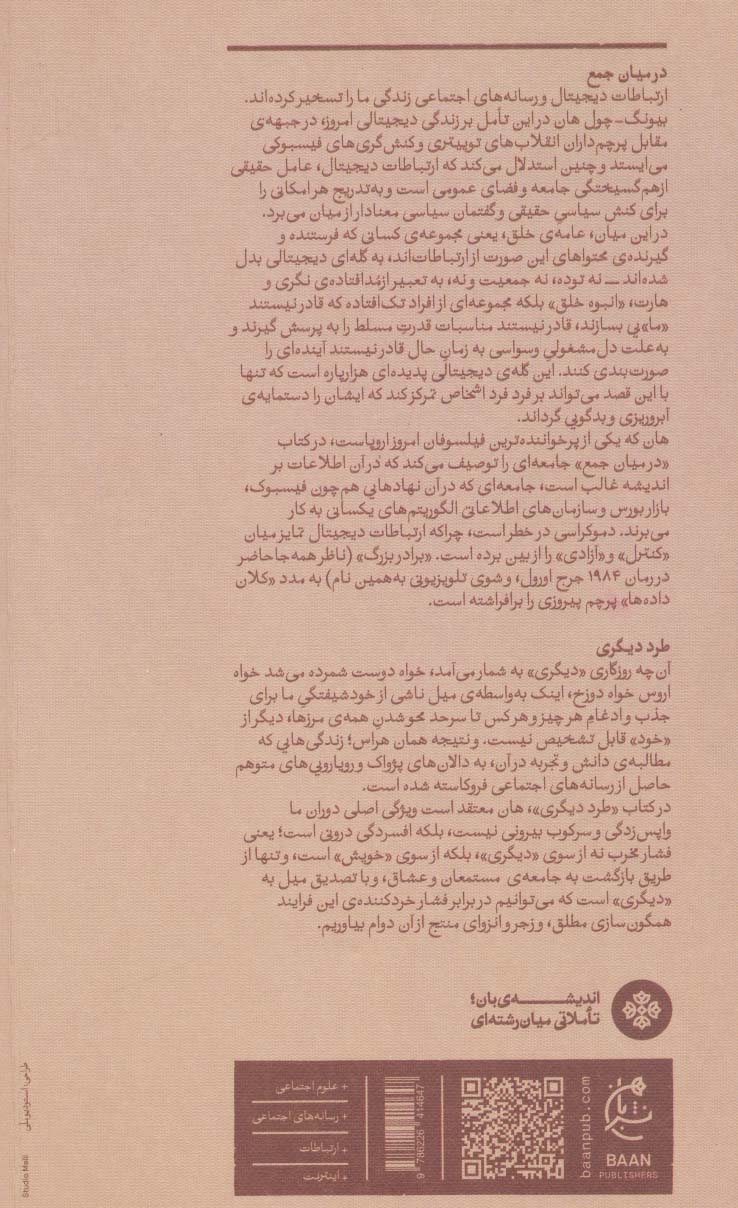 در میان جمع
ارتباطات دیجیتال و رسانه‌های اجتماعی زندگی ما را تسخیر کرده‌اند.
بیونگ-چول هان در این تأمل بر زندگی دیجیتالی امروز، در جبهه‌ی
مقابل پرچم‌داران انقلاب‌های توییتری و کنش‌گری‌های فیسبوکی
می‌ایستد و چنین استدلال می‌کند که ارتباطات دیجیتال، عامل حقیقی
ازهم‌گسیختگی جامعه و فضای عمومی است و به‌تدریج هر امکانی را
برای کنش سیاسی حقیقی و گفتمان سیاسی معنادار از میان می‌برد.
در این میان، عامه‌ی خلق، یعنی مجموعه‌ی کسانی که فرستنده و
گیرنده‌ی محتواهای این صورت از ارتباطات‌اند، به گله‌ای دیجیتالی بدل
شده‌اند ــ نه توده، نه جمعیت و نه، به تعبیر ازمُدافتاده‌ی نگری و
هارت، «انبوه خلق» بلکه مجموعه‌ای از افراد تک‌افتاده که قادر نیستند
«ما»یی بسازند، قادر نیستند مناسبات قدرتِ مسلط را به پرسش گیرند و
به علت دل‌مشغولیِ وسواسی به زمانِ حال قادر نیستند آینده‌ای را
صورت‌بندی کنند. این گله‌ی دیجیتالی پدیده‌ای هزارپاره است که تنها
با این قصد می‌تواند بر فرد فرد اشخاص تمرکز کند که ایشان را دستمایه‌ی
آبروریزی و بدگویی گرداند.
هان که یکی از پرخواننده‌ترین فیلسوفان امروز اروپاست، در کتاب
«در میان جمع» جامعه‌ای را توصیف می‌کند که در آن اطلاعات بر
اندیشه غالب است، جامعه‌ای که در آن نهادهایی هم‌چون فیسبوک،
بازار بورس و سازمان‌های اطلاعاتی الگوریتم‌های یکسانی به کار
می‌برند. دموکراسی در خطر است، چراکه ارتباطات دیجیتال تمایز میان
«کنترل» و «آزادی» را از بین برده است. «برادر بزرگ» (ناظر همه‌جاحاضر
در رمان ۱۹۸۴ جرج اورول، و شوی تلویزیونی به‌همین نام) به مدد «کلان
داده‌ها» پرچم پیروزی را برافراشته است.
طرد دیگری
آن‌چه روزگاری «دیگری» به شمار می‌آمد، خواه دوست شمرده می‌شد خواه
اروس خواه دوزخ، اینک به‌واسطه‌ی میل ناشی از خودشیفتگیِ ما برای
جذب و ادغامِ هر چیز و هر کس تا سرحد محو شدنِ همه‌ی مرزها، دیگر از
«خود» قابل تشخیص نیست. و نتیجه همان هراس؛ زندگی‌هایی که
مطالبه‌ی دانش و تجربه در آن، به دالان‌های پژواک و رویارویی‌های متوهم
حاصل از رسانه‌های اجتماعی فروکاسته شده است.
در کتاب «طرد دیگری»، هان معتقد است ویژگی اصلی دوران ما
واپس‌زدگی و سرکوب بیرونی نیست، بلکه افسردگی درونی است؛ یعنی
فشار مخرب نه از سوی «دیگری»، بلکه از سوی «خویش» است، و تنها از
طریق بازگشت به جامعه‌ی مستمعان و عشاق، و با تصدیق میل به
«دیگری» است که می‌توانیم در برابر فشار خردکننده‌ی این فرایند
همگون‌سازی مطلق، و زجر و انزوای منتج از آن دوام بیاوریم.
اندیشه‌ی بان؛
تأملاتی میان‌رشته‌ای
نشر بان
BAAN
PUBLISHERS
baanpub.com
9 780226 414647
+ علوم اجتماعی
+ رسانه‌های اجتماعی
+ ارتباطات
+ اینترنت
طراحی: استودیو ملی
Studio Melli